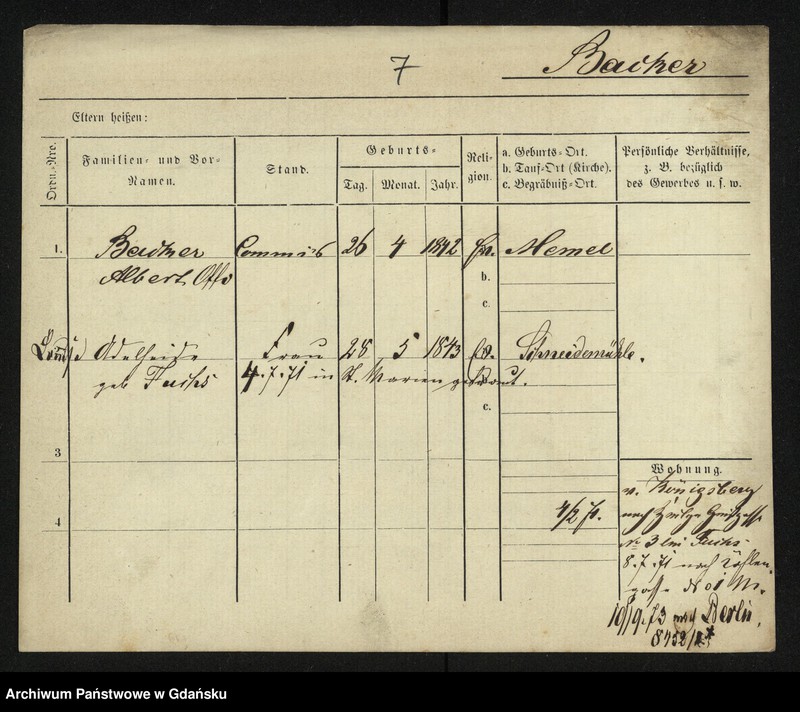 7
Backer
Eltern heißen:
Ordn.-Nro.
Familien- und Vor-
Namen.
Stand.
Geburts-
Tag. Monat. Jahr.
Reli-
gion.
a. Geburts-Ort.
b. Tauf-Ort (Kirche).
c. Begräbniß-Ort.
Persönliche Verhältnisse,
z. B. bezüglich
des Gewerbes u. s. w.
1. Backer Commis 26 4 1842 Memel
Albert Otto
b.
c.
Adelheide Frau 28 5 1843 Schneidemühle.
geb Fuchs 4.7.71 in St. Marien getraut.
c.
3
4
Wohnung.
v. Königsberg
nach
No 3 bei Fuchs
8.7.71 nach
gasse No
10/9.73 nach Berlin.
Archiwum Państwowe w Gdańsku